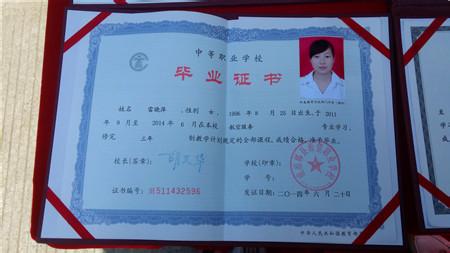 中等职业学校
毕业证书
姓名 雷晓萍 性别 女, 1996 年 8 月 25 日出生,于 2011
年 9 月至 2014 年 6 月在本校 航空服务 专业学习,
修完 三年 制教学计划规定的全部课程,成绩合格,准予毕业。
校长(签章): 学校(印章):
学 号:
证书编号: 511432596 发证日期: 二〇一四年 六 月 二十 日
中华人民共和国教育部